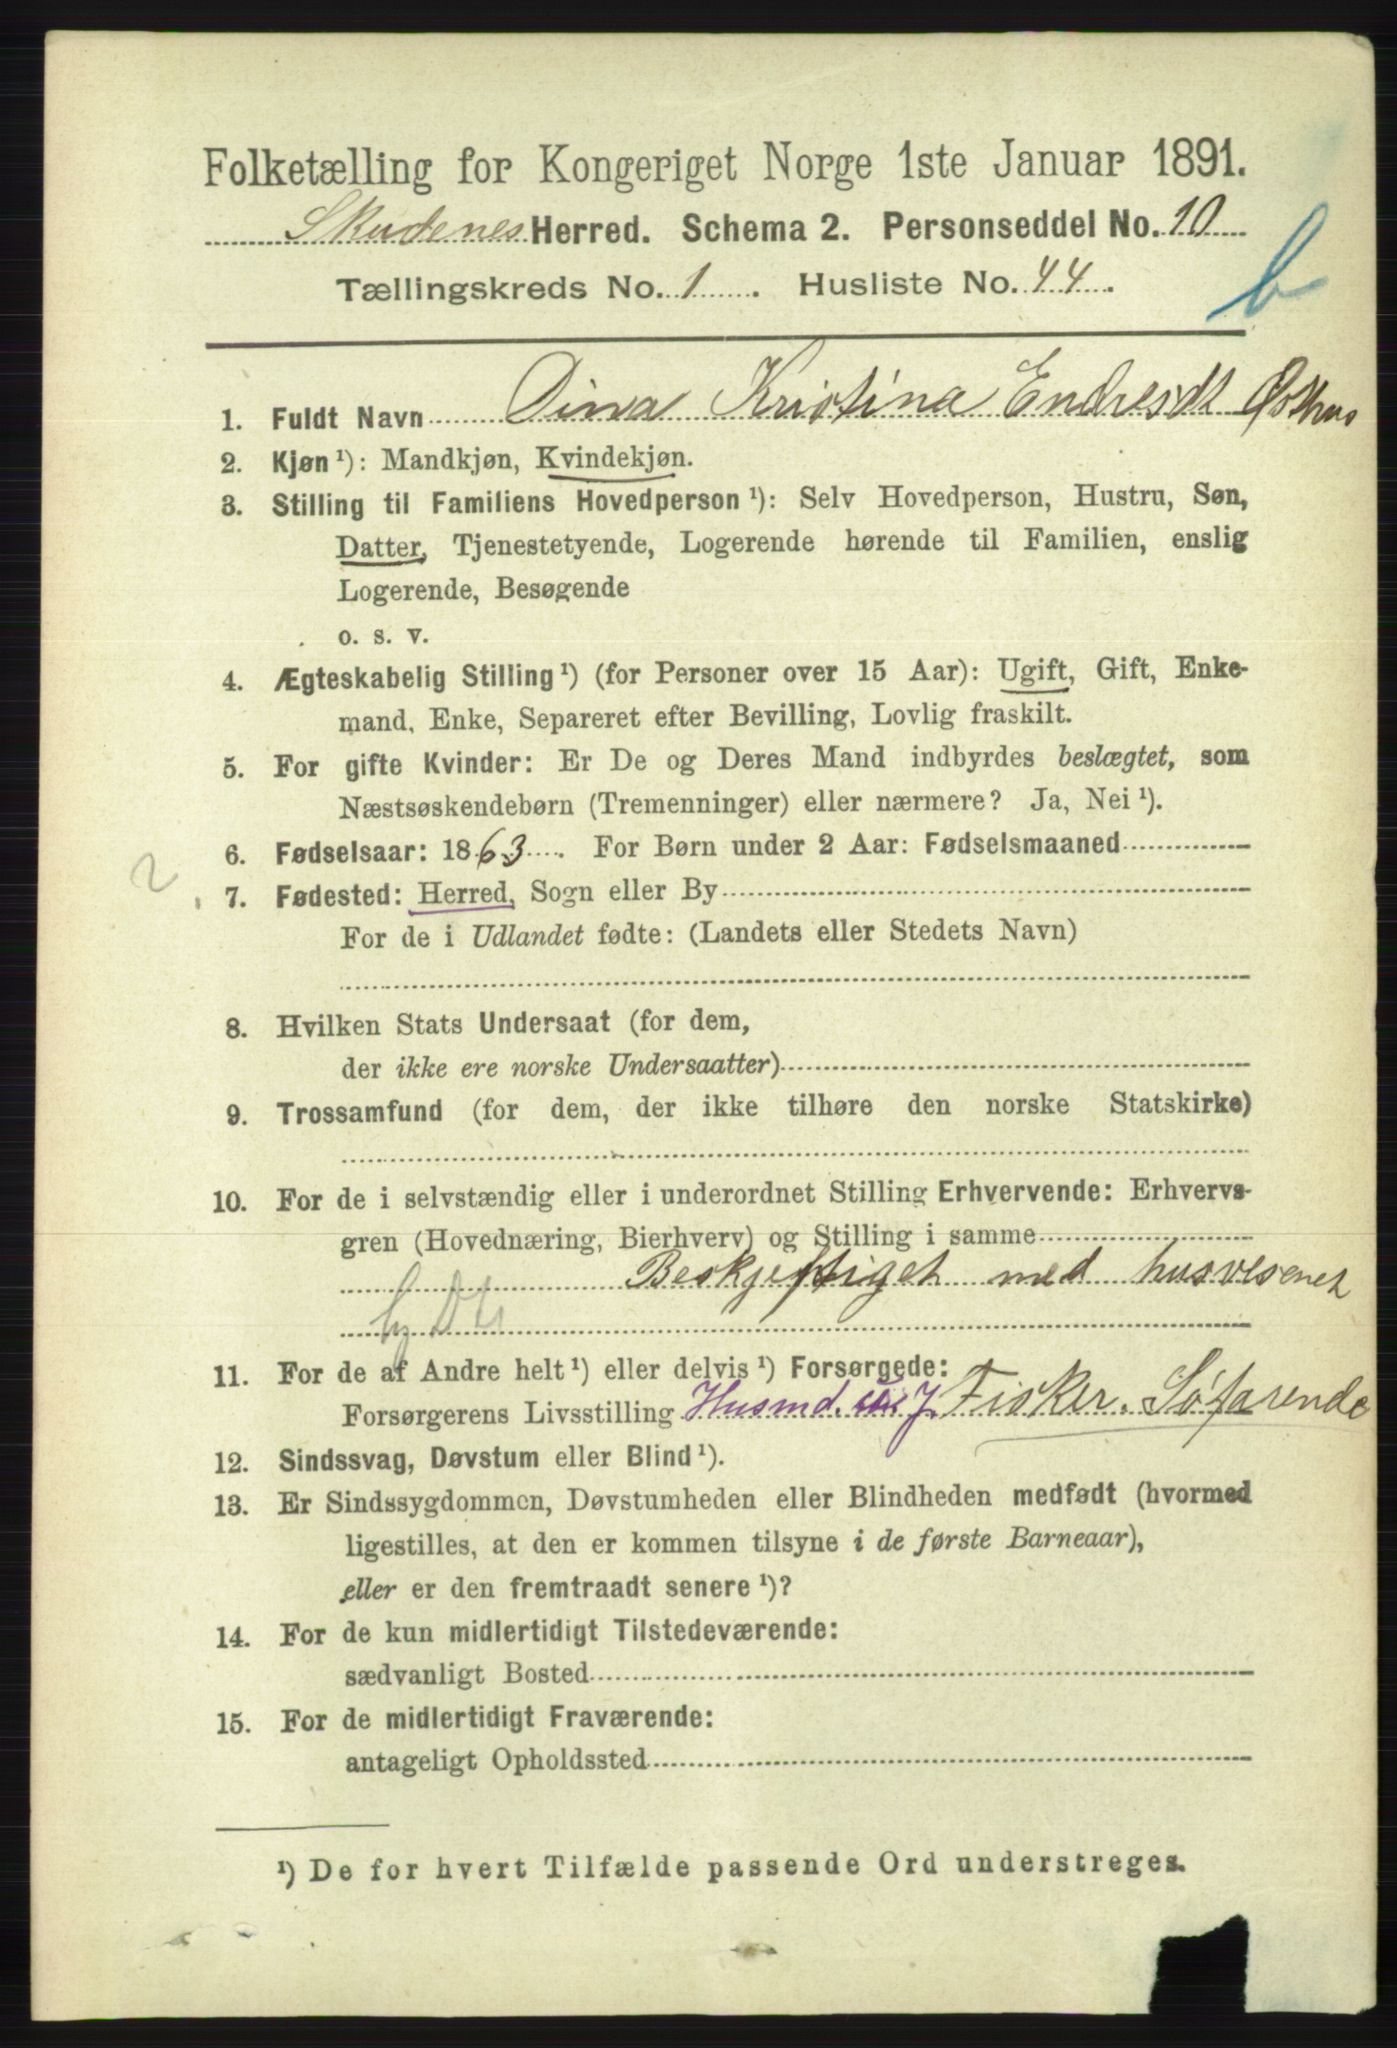 Folketælling for Kongeriget Norge 1ste Januar 1891.
Skudenes Herred. Schema 2. Personseddel No. 10
Tællingskreds No. 1. Husliste No. 44.
b
1. Fuldt Navn Dina Kristina Endresdt Østhus
2. Kjøn ¹): Mandkjøn, Kvindekjøn.
3. Stilling til Familiens Hovedperson ¹): Selv Hovedperson, Hustru, Søn,
Datter, Tjenestetyende, Logerende hørende til Familien, enslig
Logerende, Besøgende
o. s. v.
4. Ægteskabelig Stilling ¹) (for Personer over 15 Aar): Ugift, Gift, Enke-
mand, Enke, Separeret efter Bevilling, Lovlig fraskilt.
5. For gifte Kvinder: Er De og Deres Mand indbyrdes beslægtet, som
Næstsøskendebørn (Tremenninger) eller nærmere? Ja, Nei ¹).
6. Fødselsaar: 1863. For Børn under 2 Aar: Fødselsmaaned
2
7. Fødested: Herred, Sogn eller By
For de i Udlandet fødte: (Landets eller Stedets Navn)
8. Hvilken Stats Undersaat (for dem,
der ikke ere norske Undersaatter)
9. Trossamfund (for dem, der ikke tilhøre den norske Statskirke)
10. For de i selvstændig eller i underordnet Stilling Erhvervende: Erhvervs-
gren (Hovednæring, Bierhverv) og Stilling i samme
Beskjeftiget med husvesenet
11. For de af Andre helt ¹) eller delvis ¹) Forsørgede:
Forsørgerens Livsstilling Husmd. J. Fisker. Søfarende
12. Sindssvag, Døvstum eller Blind ¹).
13. Er Sindssygdommen, Døvstumheden eller Blindheden medfødt (hvormed
ligestilles, at den er kommen tilsyne i de første Barneaar),
eller er den fremtraadt senere ¹)?
14. For de kun midlertidigt Tilstedeværende:
sædvanligt Bosted
15. For de midlertidigt Fraværende:
antageligt Opholdssted
¹) De for hvert Tilfælde passende Ord understreges.